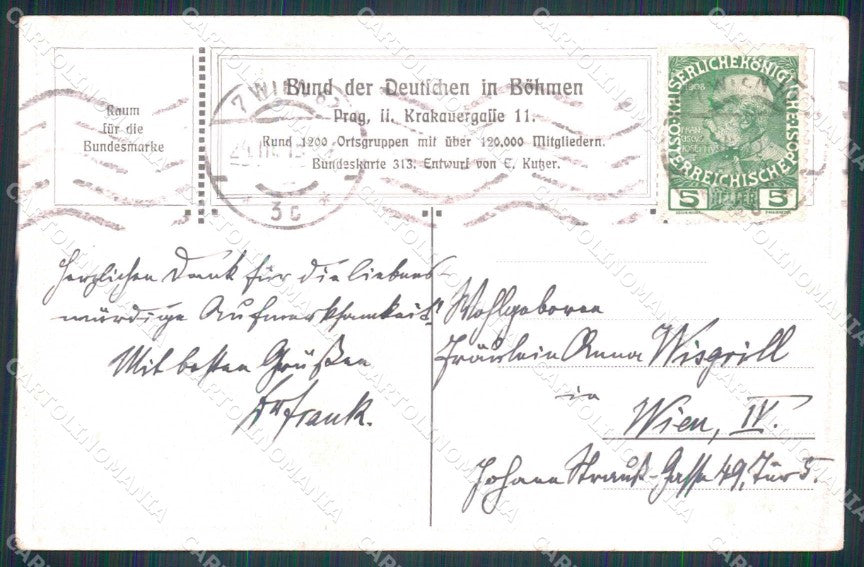 Raum
für die
Bundesmarke
Bund der Deutschen in Böhmen
Prag, II. Krakauergasse 11.
Rund 1200 Ortsgruppen mit über 120.000 Mitgliedern.
Bundeskarte 313. Entwurf von E. Kutzer.
7 WIEN
3c
1908
KAISERLICHE KÖNIGLICHE
ÖSTERREICHISCHE POST
5 HELLER 5
Herzlichen Dank für die liebens-
würdige Aufmerksamkeit!
Mit besten Grüßen
Dr Frank.
Wohlgeboren
Fräulein Anna Wisgrill
in
Wien, IV.
Johann Strauß-Gasse 49, Tür 5.
CARTOLINOMANIA